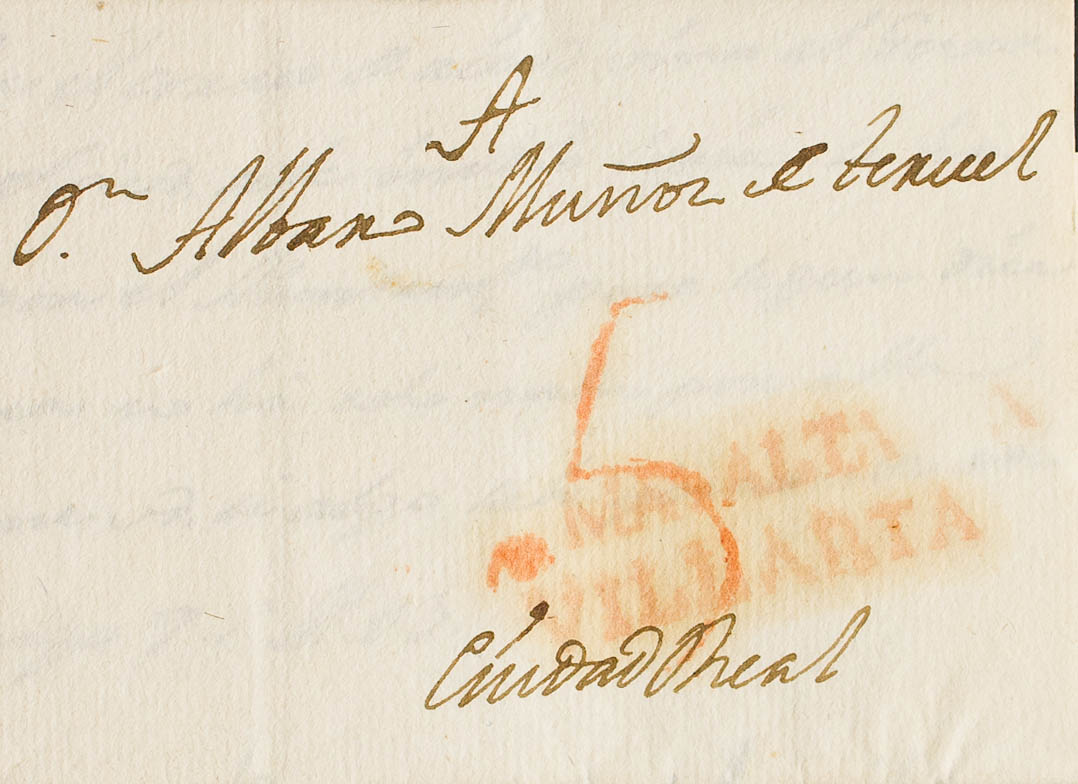 A
Dn. Alvano Muñoz e teruel
5
M ALTA
VILLARTA
Ciudad Real